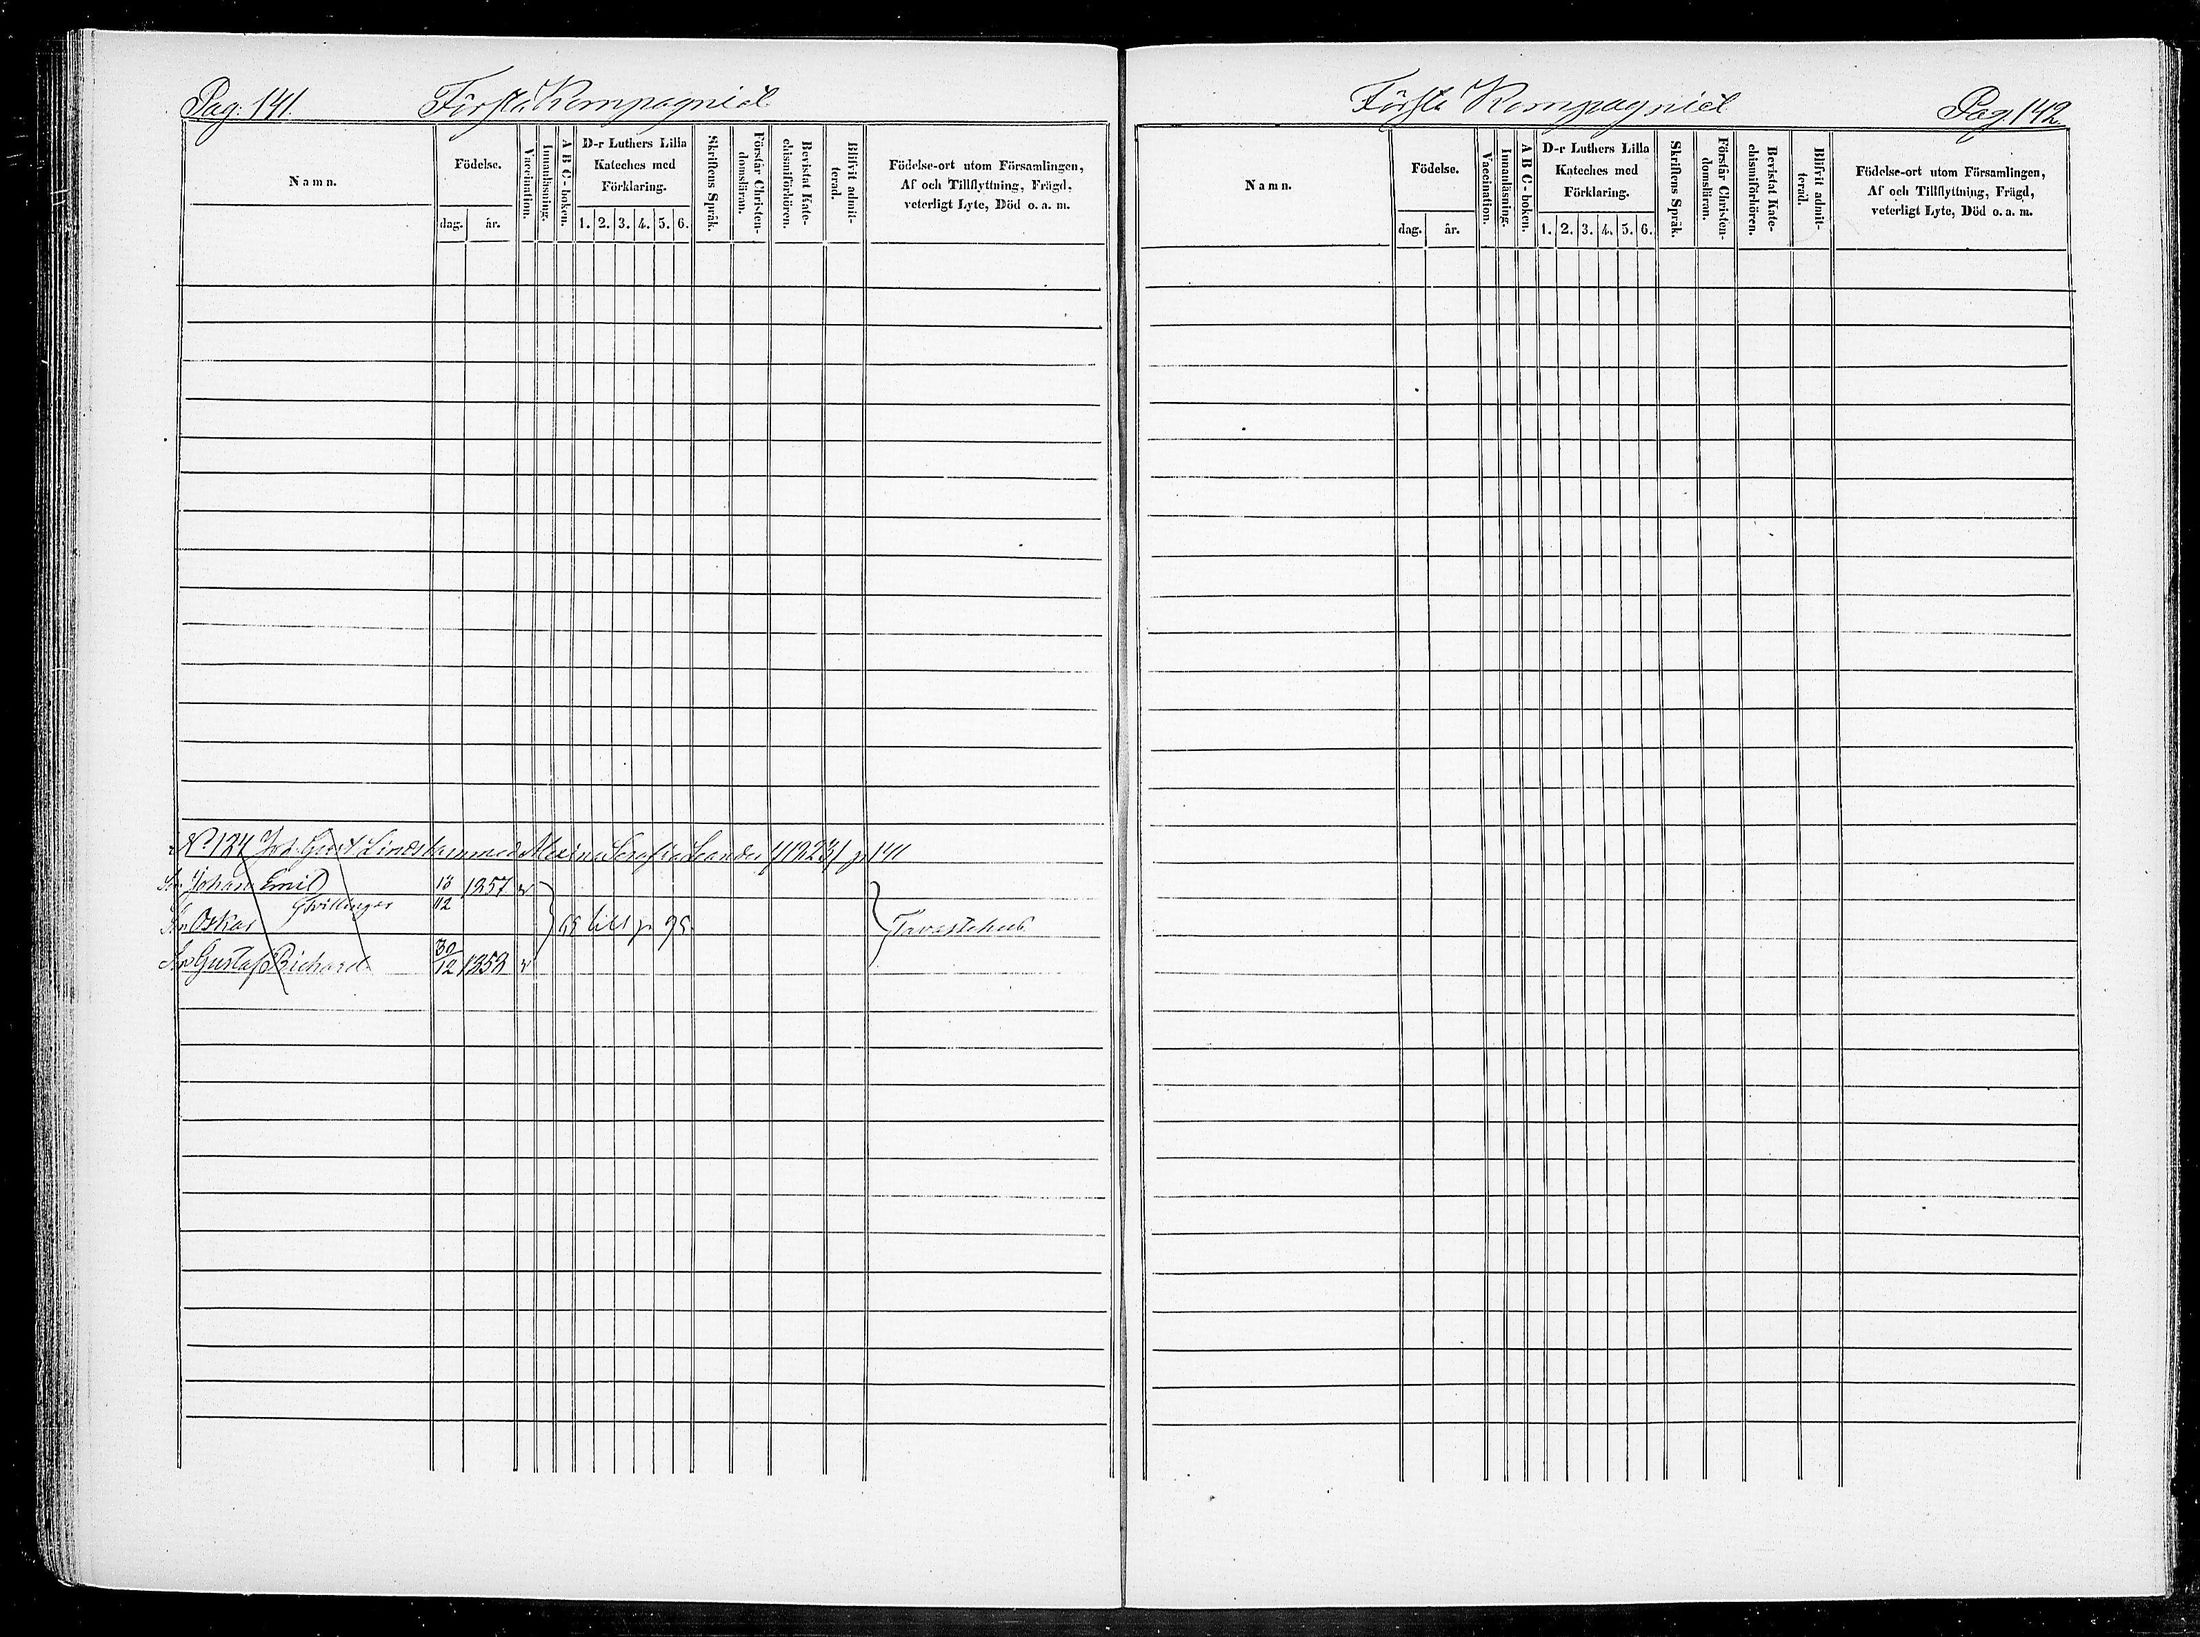 Pag. 141.
Första Kompagniet
Namn.
Födelse.
dag. år.
Vaccination.
Innanläsning.
A B C-boken.
D-r Luthers Lilla
Kateches med
Förklaring.
1. 2. 3. 4. 5. 6.
Skriftens Språk.
Förstår Christen-
domsläran.
Bevistat Kate-
chismiförhören.
Blifvit admit-
terad.
Födelse-ort utom Församlingen,
Af och Tillflyttning, Frägd,
veterligt Lyte, Död o. a. m.
No 124 Joh. Gust. med p 141
Son Johan Emil 13/12 1857 v
Tvillingar
Sn Oskar
Sn Gustaf Richard 30/12 1858 v
till p. 95
Tavastehus
Första Kompagniet
Pag. 142.
Namn.
Födelse.
dag. år.
Vaccination.
Innanläsning.
A B C-boken.
D-r Luthers Lilla
Kateches med
Förklaring.
1. 2. 3. 4. 5. 6.
Skriftens Språk.
Förstår Christen-
domsläran.
Bevistat Kate-
chismiförhören.
Blifvit admit-
terad.
Födelse-ort utom Församlingen,
Af och Tillflyttning, Frägd,
veterligt Lyte, Död o. a. m.